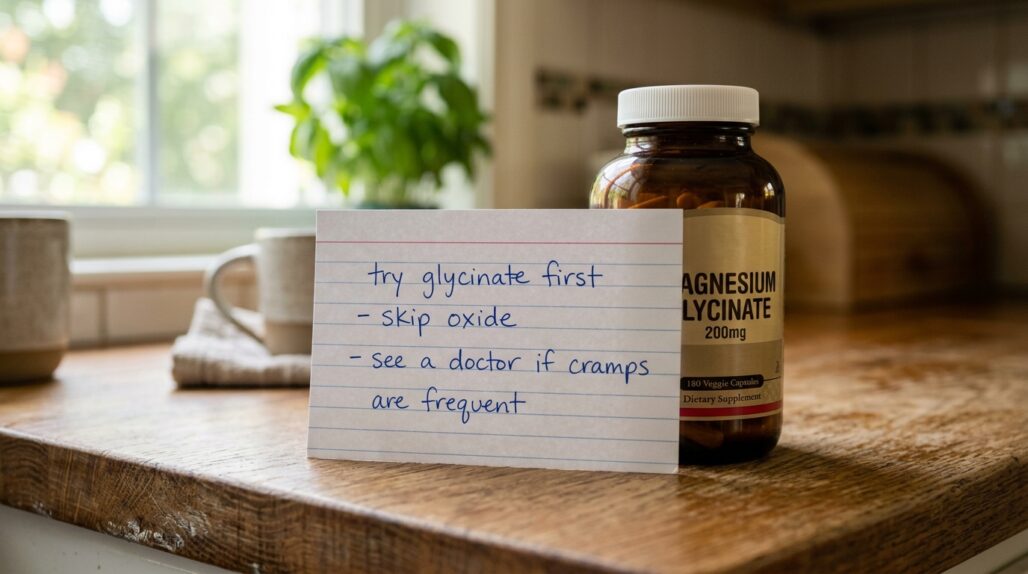 try glycinate first
- skip oxide
- see a doctor if cramps
are frequent
AGNESIUM
LYCINATE
200mg
180 Veggie Capsules
Dietary Supplement